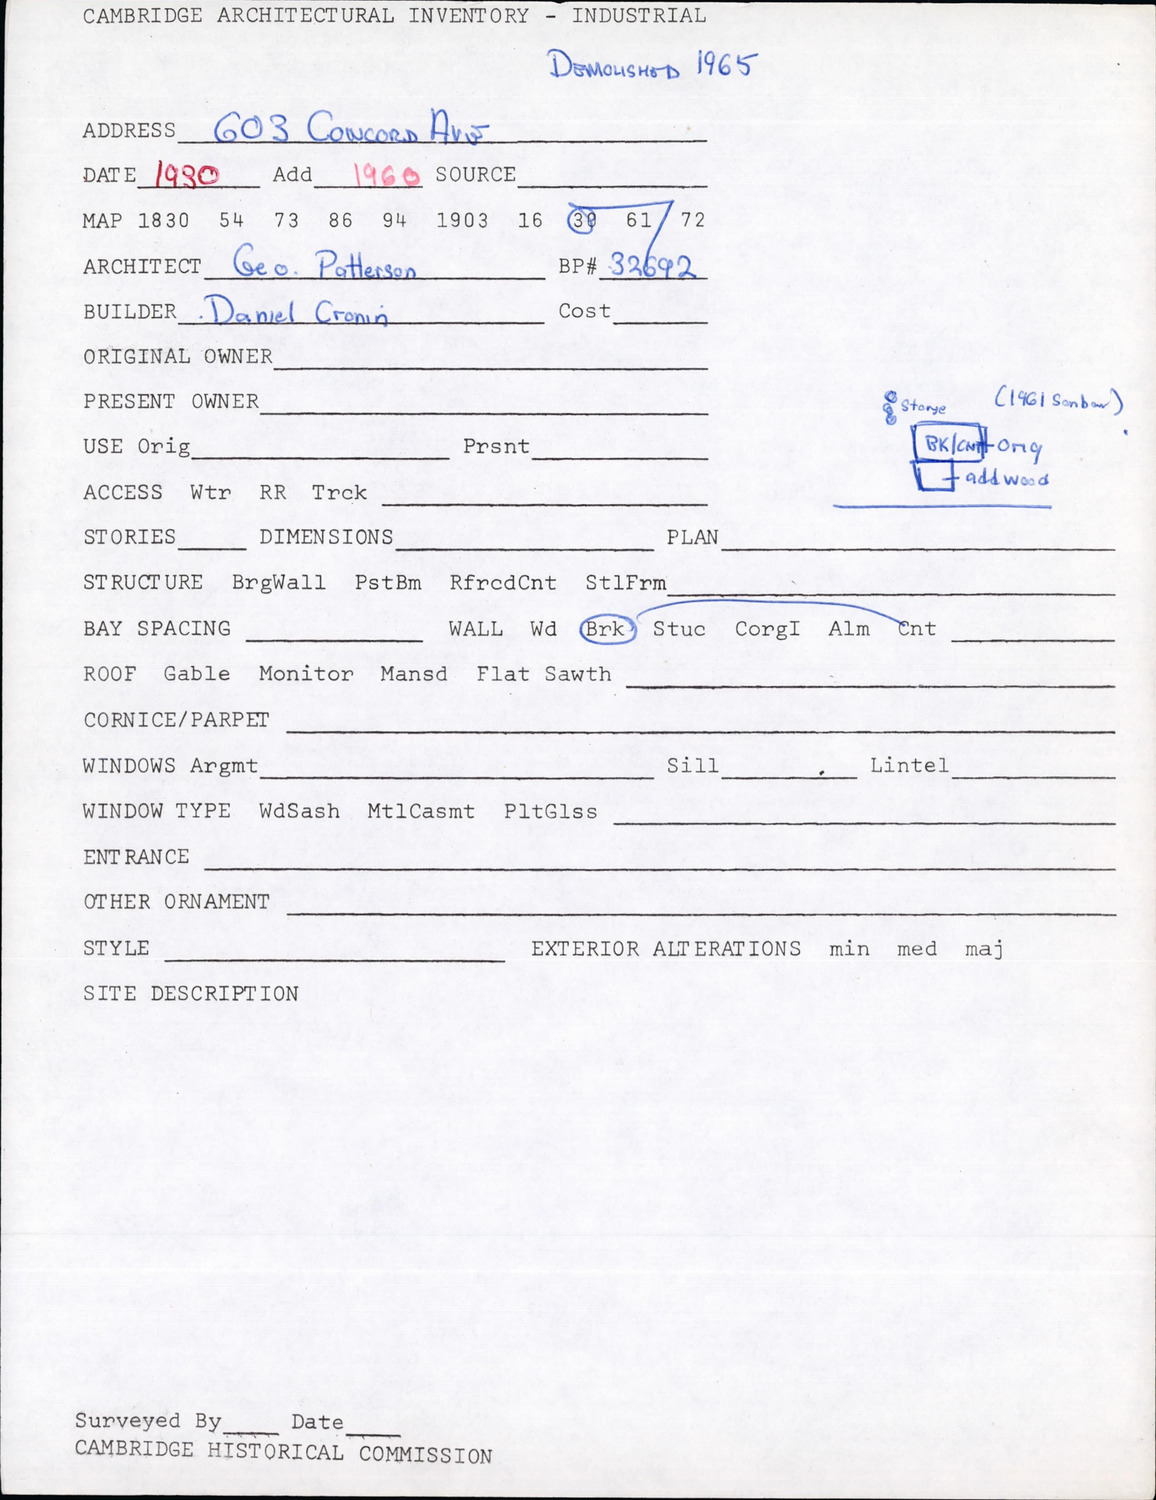 CAMBRIDGE ARCHITECTURAL INVENTORY - INDUSTRIAL
DEMOLISHED 1965
ADDRESS 603 CONCORD AVE
DATE 1930 Add 1960 SOURCE
MAP 1830 54 73 86 94 1903 16 30 61 72
ARCHITECT Geo. Patterson BP# 32692
BUILDER Daniel Cronin Cost
ORIGINAL OWNER
PRESENT OWNER
Storge (1961 Sanborn)
BK/CNT Orig
add wood
USE Orig Prsnt
ACCESS Wtr RR Trck
STORIES DIMENSIONS PLAN
STRUCTURE BrgWall PstBm RfrcdCnt StlFrm
BAY SPACING WALL Wd Brk Stuc CorgI Alm Cnt
ROOF Gable Monitor Mansd Flat Sawth
CORNICE/PARPET
WINDOWS Argmt Sill Lintel
WINDOW TYPE WdSash MtlCasmt PltGlss
ENTRANCE
OTHER ORNAMENT
STYLE EXTERIOR ALTERATIONS min med maj
SITE DESCRIPTION
Surveyed By Date
CAMBRIDGE HISTORICAL COMMISSION